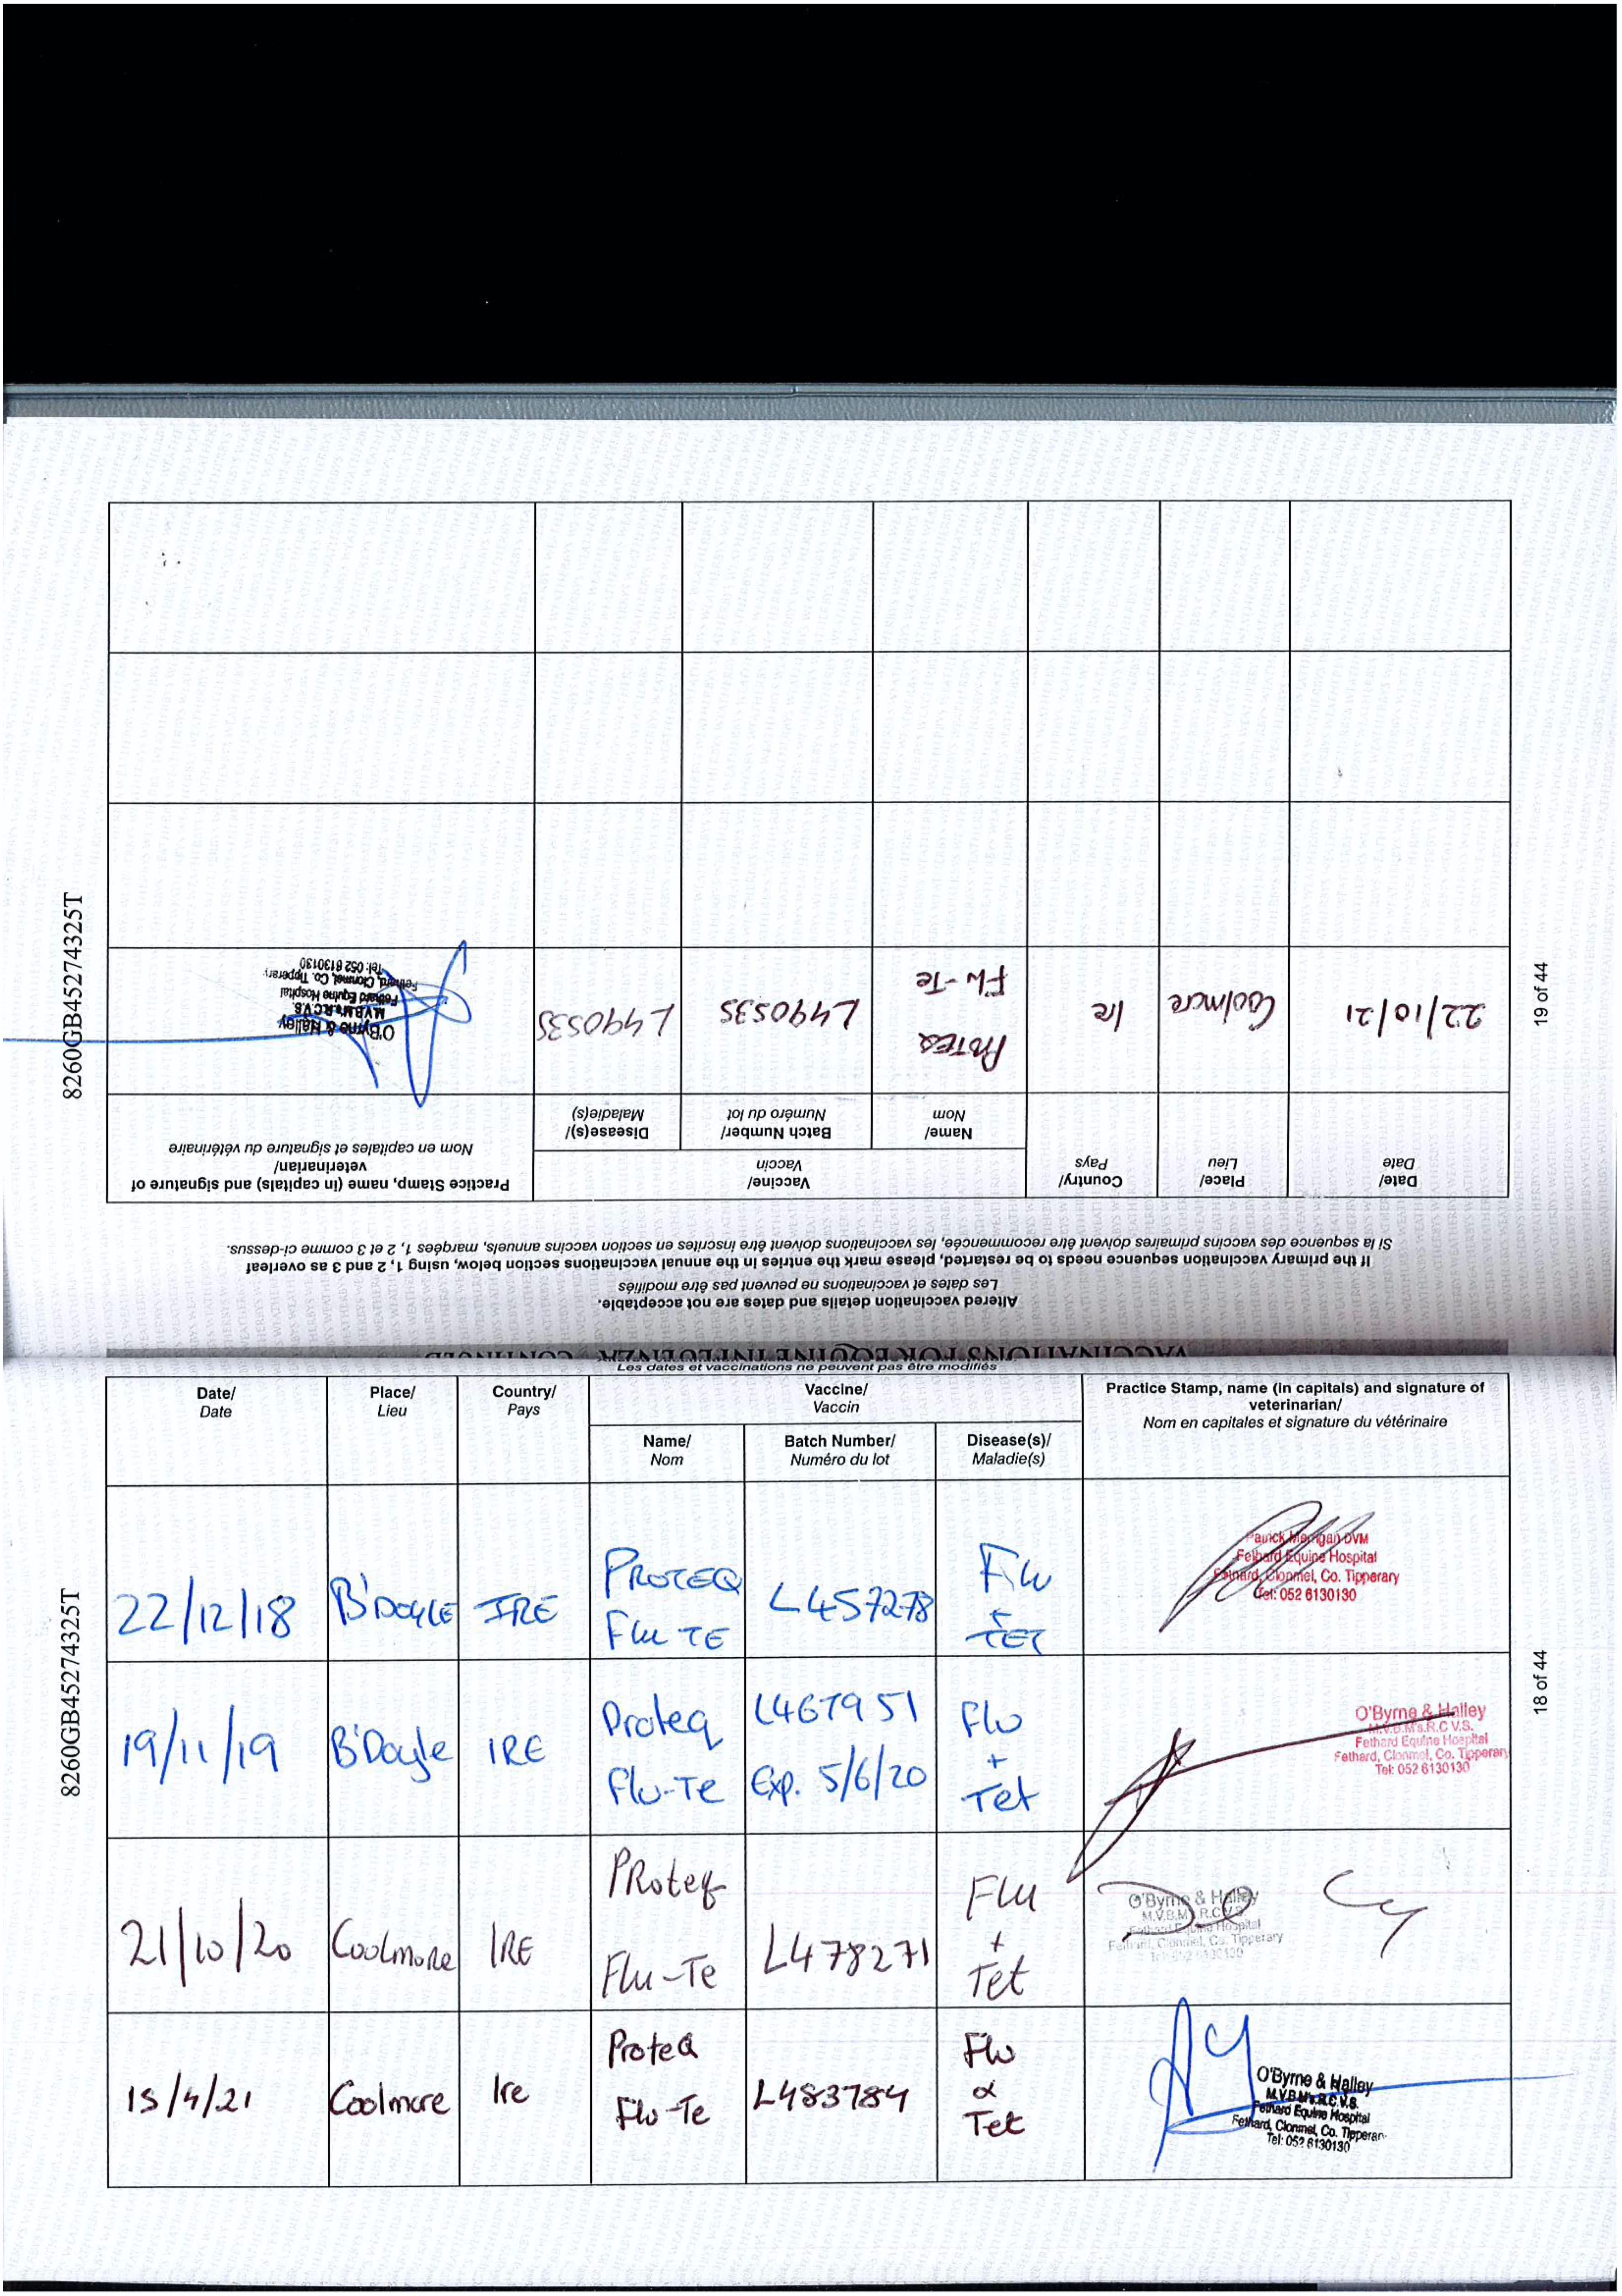 8260GB45274325T
18 of 44
Les dates et vaccinations ne peuvent pas être modifiés
Date/
Date
Place/
Lieu
Country/
Pays
Vaccine/
Vaccin
Name/
Nom
Batch Number/
Numéro du lot
Disease(s)/
Maladie(s)
Practice Stamp, name (in capitals) and signature of
veterinarian/
Nom en capitales et signature du vétérinaire
22/12/18 B'DOYLE IRE PROTEQ Flu TE L457278 Flu + TET
DVM
Fethard Equine Hospital
Fethard, Clonmel, Co. Tipperary
Tel: 052 6130130
19/11/19 B'Doyle IRE Proteq Flu-Te L467951 Exp. 5/6/20 Flu + Tet
O'Byrne & Halley
M.V.B.M's.R.C.V.S.
Fethard Equine Hospital
Fethard, Clonmel, Co. Tipperary
Tel: 052 6130130
21/10/20 Coolmore IRE PRoteq Flu-Te L478271 Flu + Tet
O'Byrne & Halley
M.V.B.M's.R.C.V.S.
Fethard Equine Hospital
Fethard, Clonmel, Co. Tipperary
Tel: 052 6130130
15/4/21 Coolmore Ire ProteQ Flu-Te L483784 Flu & Tet
O'Byrne & Halley
M.V.B.M's.R.C.V.S.
Fethard Equine Hospital
Fethard, Clonmel, Co. Tipperary
Tel: 052 6130130
8260GB45274325T
19 of 44
VACCINATIONS FOR EQUINE INFLUENZA CONTINUED
Altered vaccination details and dates are not acceptable.
Les dates et vaccinations ne peuvent pas être modifiés
If the primary vaccination sequence needs to be restarted, please mark the entries in the annual vaccinations section below, using 1, 2 and 3 as overleaf
Si la séquence des vaccins primaires doivent être recommencée, les vaccinations doivent être inscrites en section vaccins annuels, margées 1, 2 et 3 comme ci-dessus.
Date/
Date
Place/
Lieu
Country/
Pays
Vaccine/
Vaccin
Name/
Nom
Batch Number/
Numéro du lot
Disease(s)/
Maladie(s)
Practice Stamp, name (in capitals) and signature of
veterinarian/
Nom en capitales et signature du vétérinaire
22/10/21 Coolmore Ire PROTEQ Flu-Te L490535 L490535
O'Byrne & Halley
M.V.B.M's.R.C.V.S.
Fethard Equine Hospital
Fethard, Clonmel, Co. Tipperary
Tel: 052 6130130